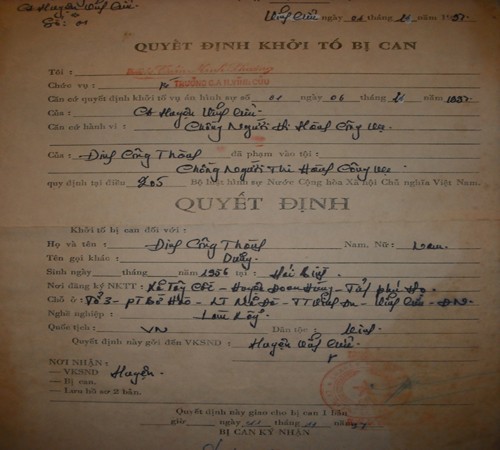 CA Huyện Vĩnh Cửu
Số: 01
Vĩnh Cửu ngày 06 tháng năm 1997
QUYẾT ĐỊNH KHỞI TỐ BỊ CAN
Tôi :
Chức vụ : TRƯỞNG C.A H.VĨNH CỬU
Căn cứ quyết định khởi tố vụ án hình sự số 01 ngày 06 tháng năm 1997
Của : CA Huyện Vĩnh Cửu
Căn cứ hành vi : Chống Người thi Hành Công vụ
Của : Đinh Công Thành đã phạm vào tội :
Chống Người Thi Hành Công Vụ
quy định tại điều 205 Bộ luật hình sự Nước Cộng hòa Xã hội Chủ nghĩa Việt Nam.
QUYẾT ĐỊNH
Khởi tố bị can đối với :
Họ và tên : Đinh Công Thành Nam, Nữ : Nam
Tên gọi khác :
Sinh ngày tháng năm 1956 tại :
Nơi đăng ký NKTT : Huyện Đoan Hùng - phú thọ
Chỗ ở : Tổ 3 - TT Vĩnh An - Vĩnh Cửu - ĐN
Nghề nghiệp : Làm
Quốc tịch : VN Dân tộc : Kinh
Quyết định này gởi đến VKSND : Huyện Vĩnh Cửu
NƠI NHẬN :
— VKSND Huyện
— Bị can.
— Lưu hồ sơ 2 bản.
Quyết định này giao cho bị can 1 bản
giờ ngày tháng 11 năm 97
BỊ CAN KÝ NHẬN